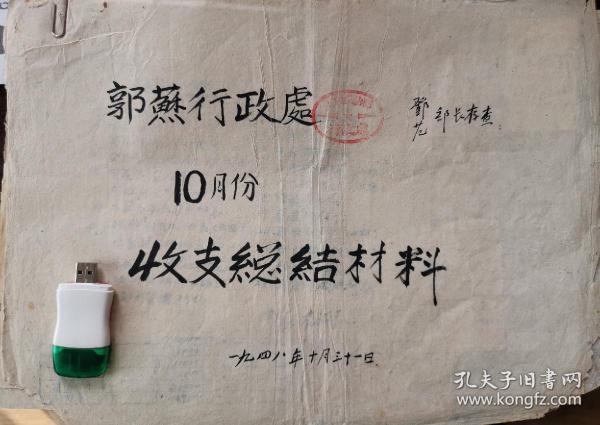 郭蘇行政處
鄧范部长存查
10月份
收支総結材料
一九四八年十月三十一日
孔夫子旧書网
www.kongfz.com